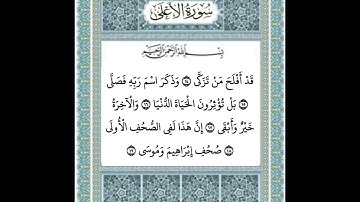 سُورَةُ الأَعْلَى
بِسْمِ اللَّهِ الرَّحْمَنِ الرَّحِيمِ
قَدْ أَفْلَحَ مَنْ تَزَكَّى ﴿١٤﴾ وَذَكَرَ اسْمَ رَبِّهِ فَصَلَّى
﴿١٥﴾ بَلْ تُؤْثِرُونَ الْحَيَاةَ الدُّنْيَا ﴿١٦﴾ وَالْآخِرَةُ
خَيْرٌ وَأَبْقَى ﴿١٧﴾ إِنَّ هَذَا لَفِي الصُّحُفِ الْأُولَى
﴿١٨﴾ صُحُفِ إِبْرَاهِيمَ وَمُوسَى ﴿١٩﴾